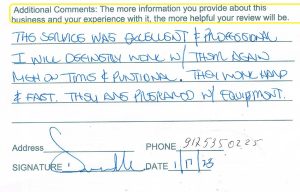 Additional Comments: The more information you provide about this
business and your experience with it, the more helpful your review will be.
THE SERVICE WAS EXCELLENT & PROFESSIONAL
I WILL DEFINETLY WORK W/ THEM AGAIN
MEN ON TIME & PUNTIONAL. THEY WORK HARD
& FAST. THEY ARE PREPARED W/ EQUIPMENT.
Address PHONE 9125350225
SIGNATURE DATE 1/17/23